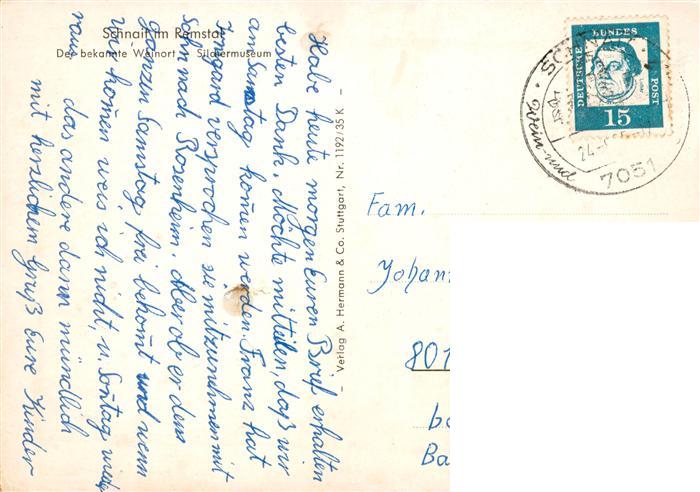 Schnait im Remstal
Der bekannte Weinort Silchermuseum
Habe heute morgen Euren Brief erhalten
besten Dank. Möchte mitteilen, daß wir
am Samstag kommen werden. Franz hat
Irmgard versprochen sie mitzunehmen mit
Sohn nach Rosenheim. Aber ob er den
ganzen Samstag frei bekommt und wenn
wir kommen weis ich nicht, u. Sontag wieder
raus
das andere dann mündlich
mit herzlichem Gruß Eure Kinder
– Verlag A. Hermann & Co. Stuttgart, Nr. 1192/35 K –
DEUTSCHE BUNDESPOST
15
Wein- und
24
7051
Fam.
Johann
801
Ba